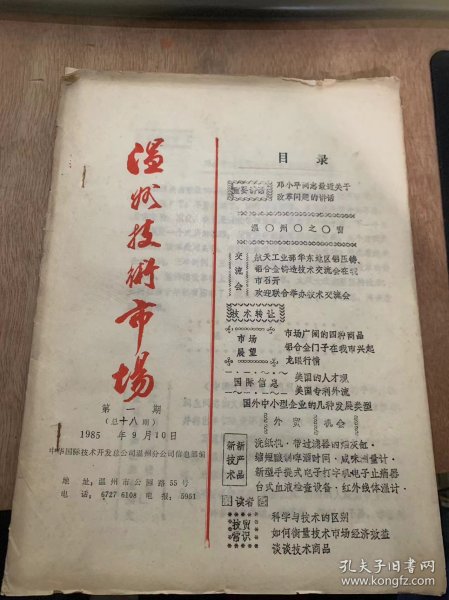 温州技術市場
第一期
(总十八期)
1985 年9月10日
中华国际技术开发总公司温州分公司信息部编
地址:温州市公园路55号
电话:6727 6108 电报:5951
目录
重要讲话
邓小平同志最近关于
改革问题的讲话
温〇州〇之〇窗
交流会
航天工业部华东地区铝压铸、
铝合金铸造技术交流会在我
市召开
欢迎联合举办技术交流会
技术转让
市场
展望
市场广阔的四种商品
铝合金门子在我市兴起
龙眼行情
国际信息
美国的人才观
美国专利外流
国外中小型企业的几种发展类型
外贸 机会
新新
技产
术品
洗纸机·带过滤器四烟灰缸·
缩短酸制啤酒时间·咸味测量计·
新型手提式电子打字机电子止痛器
台式血液检查设备·红外线体温计·
读者
技贸
常识
科学与技术的区别
如何衡量技术市场经济效益
谈谈技术商品
孔夫子旧书网
book.kongfz.com